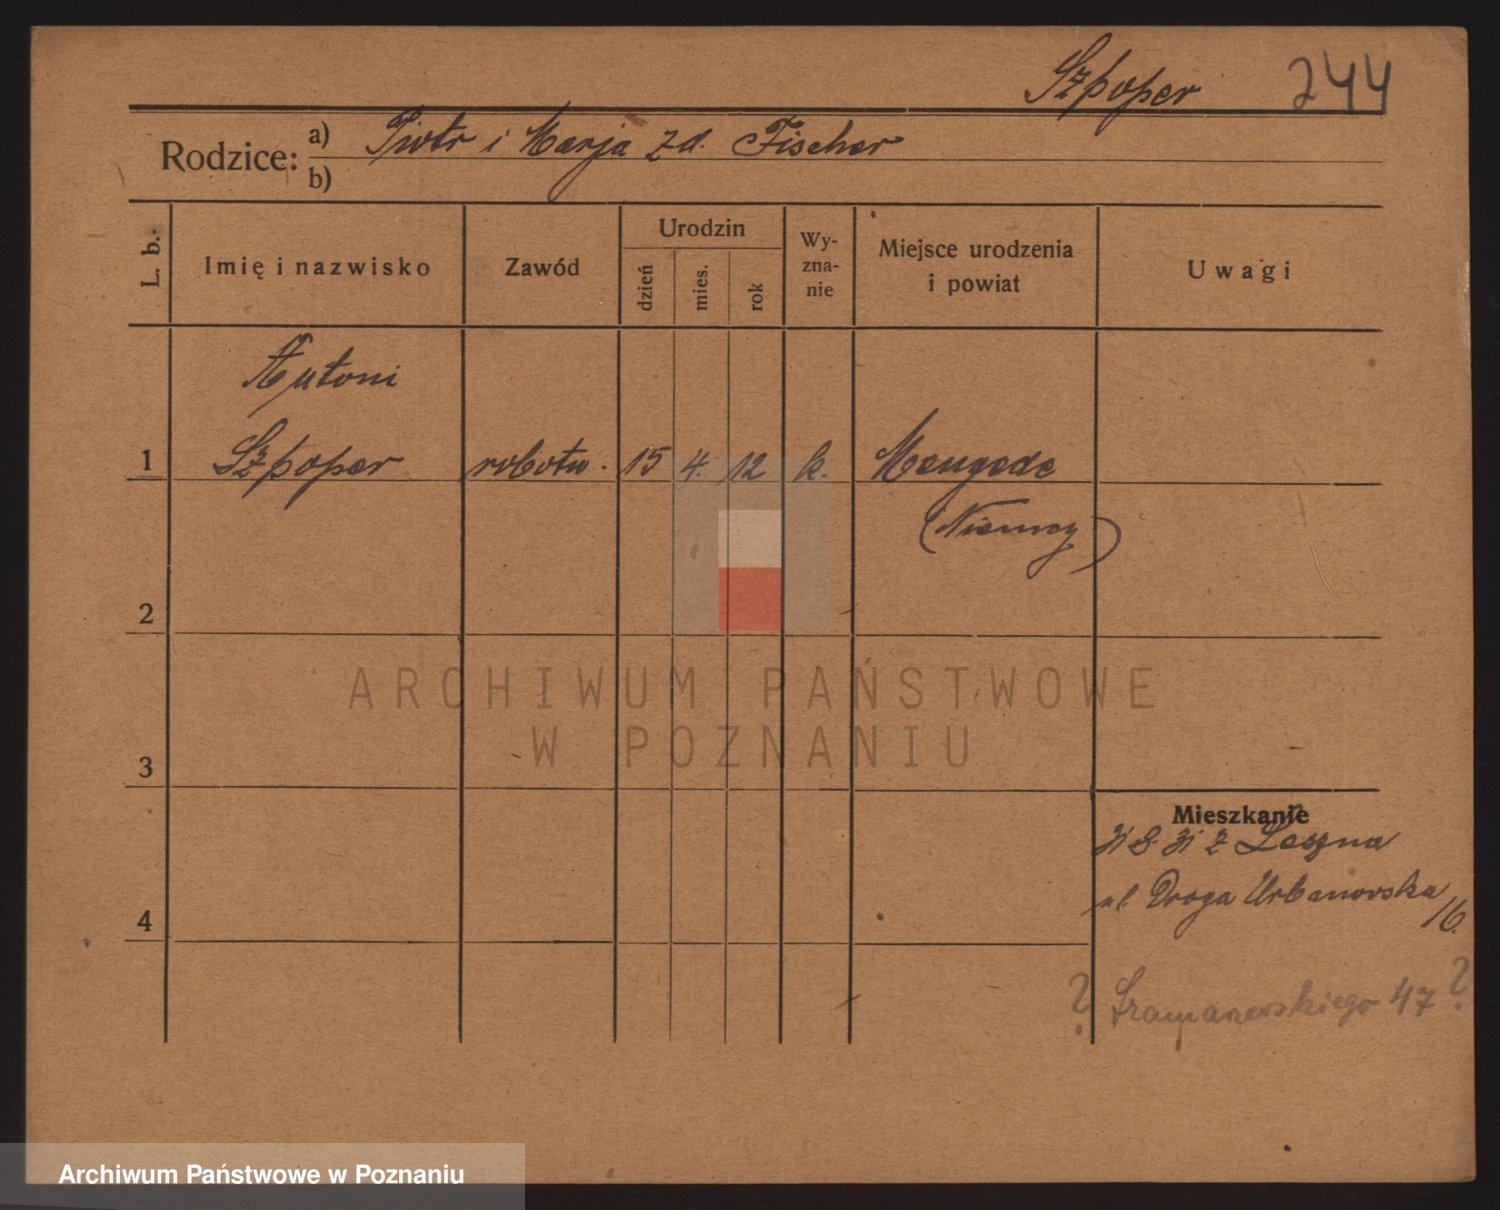 Szpoper 244
Rodzice: a) Piotr i Marja zd. Fischer
b)
L. b. Imię i nazwisko Zawód Urodzin dzień mies. rok Wy-zna-nie Miejsce urodzenia i powiat Uwagi
Antoni
1 Szpoper robotn. 15 4. 12 k. Mengede
(Niemcy)
2
ARCHIWUM PAŃSTWOWE
W POZNANIU
3
Mieszkanie
z Leszna
ul. Droga Urbanowska
16.
4
? 47 ?
Archiwum Państwowe w Poznaniu